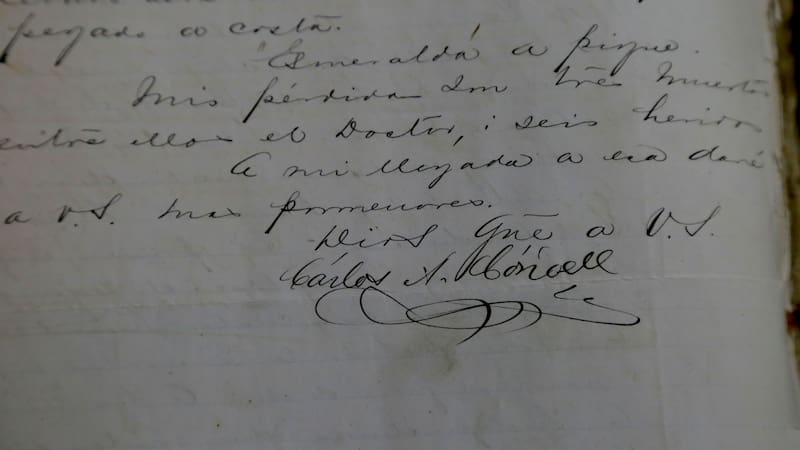 pegado a costa.
Esmeralda a pique.
Mis pérdida son tres muertos
entre ellos el Doctor, i seis heridos
A mi llegada a esa daré
a V.S. mas pormenores.
Dios gūe a V.S.
Cárlos A. Cóndell